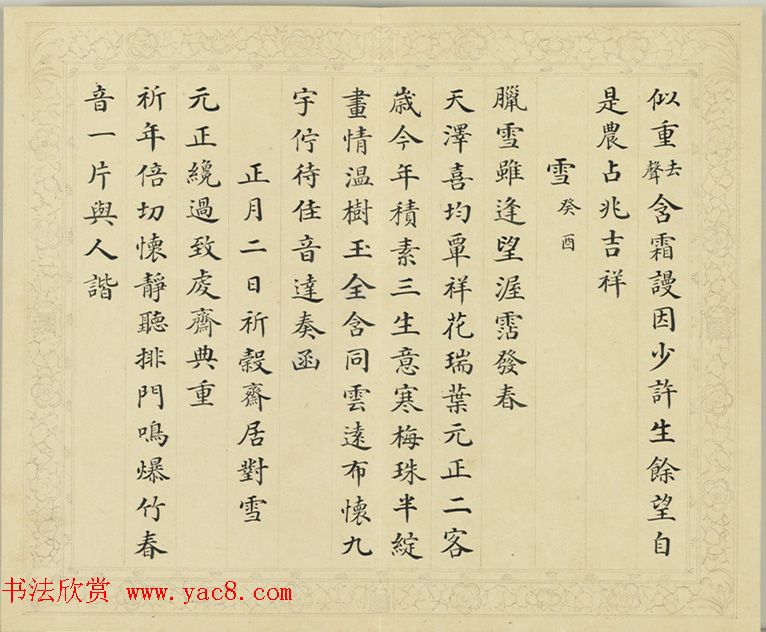 似重去聲含霜謾因少許生餘望自
是農占兆吉祥
雪癸酉
臘雪雖逢望渥霑發春
天澤喜均覃祥花瑞葉元正二客
歳今年積素三生意寒梅珠半綻
畫情温樹玉全含同雲遠布懷九
宇佇待佳音達奏函
正月二日祈穀齋居對雪
元正纔過致虔齋典重
祈年倍切懷靜聽排門鳴爆竹春
音一片與人諧
书法欣赏 www.yac8.com